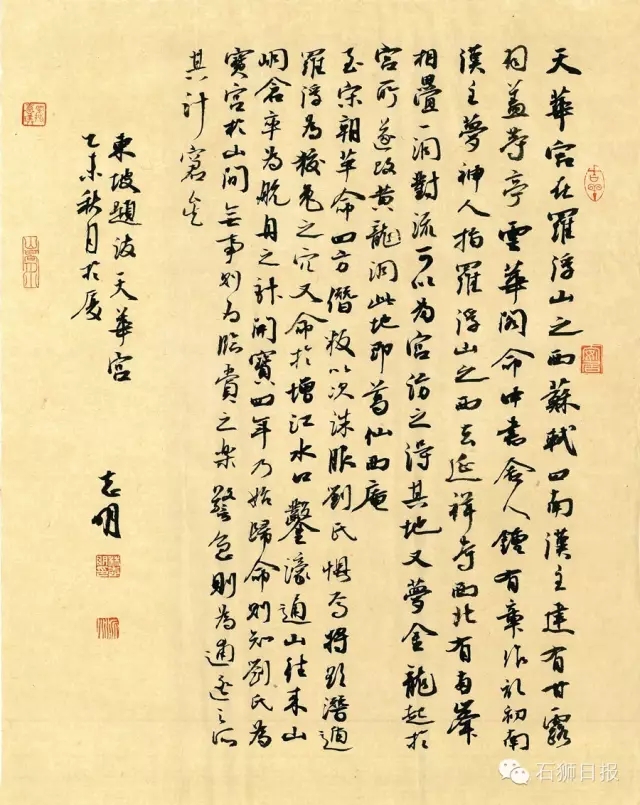 天華宮在羅浮山之西蘇軾曰南漢主建有甘露
羽蓋等亭雲華閣命中書舍人鍾有章作記初南
漢主夢神人指羅浮山之西去延祥寺西北有两峯
相疊一洞對流可以為宮訪之得其地又夢金龍起於
宮所遂改黃龍洞此地即葛仙西庵
至宋朝革命四方僭叛以次誅服劉氏懼焉將欲潛遁
羅浮為狡兔之穴又命於增江水口鑿濠通山往来山
峒倉卒為航舟之計開寶四年乃始歸命則知劉氏為
寶宮於山間無事則為臨賞之樂警急則為逋逃之所
其計窘矣
東坡題跋天華宮
乙未秋月於厦
志明
石狮日报